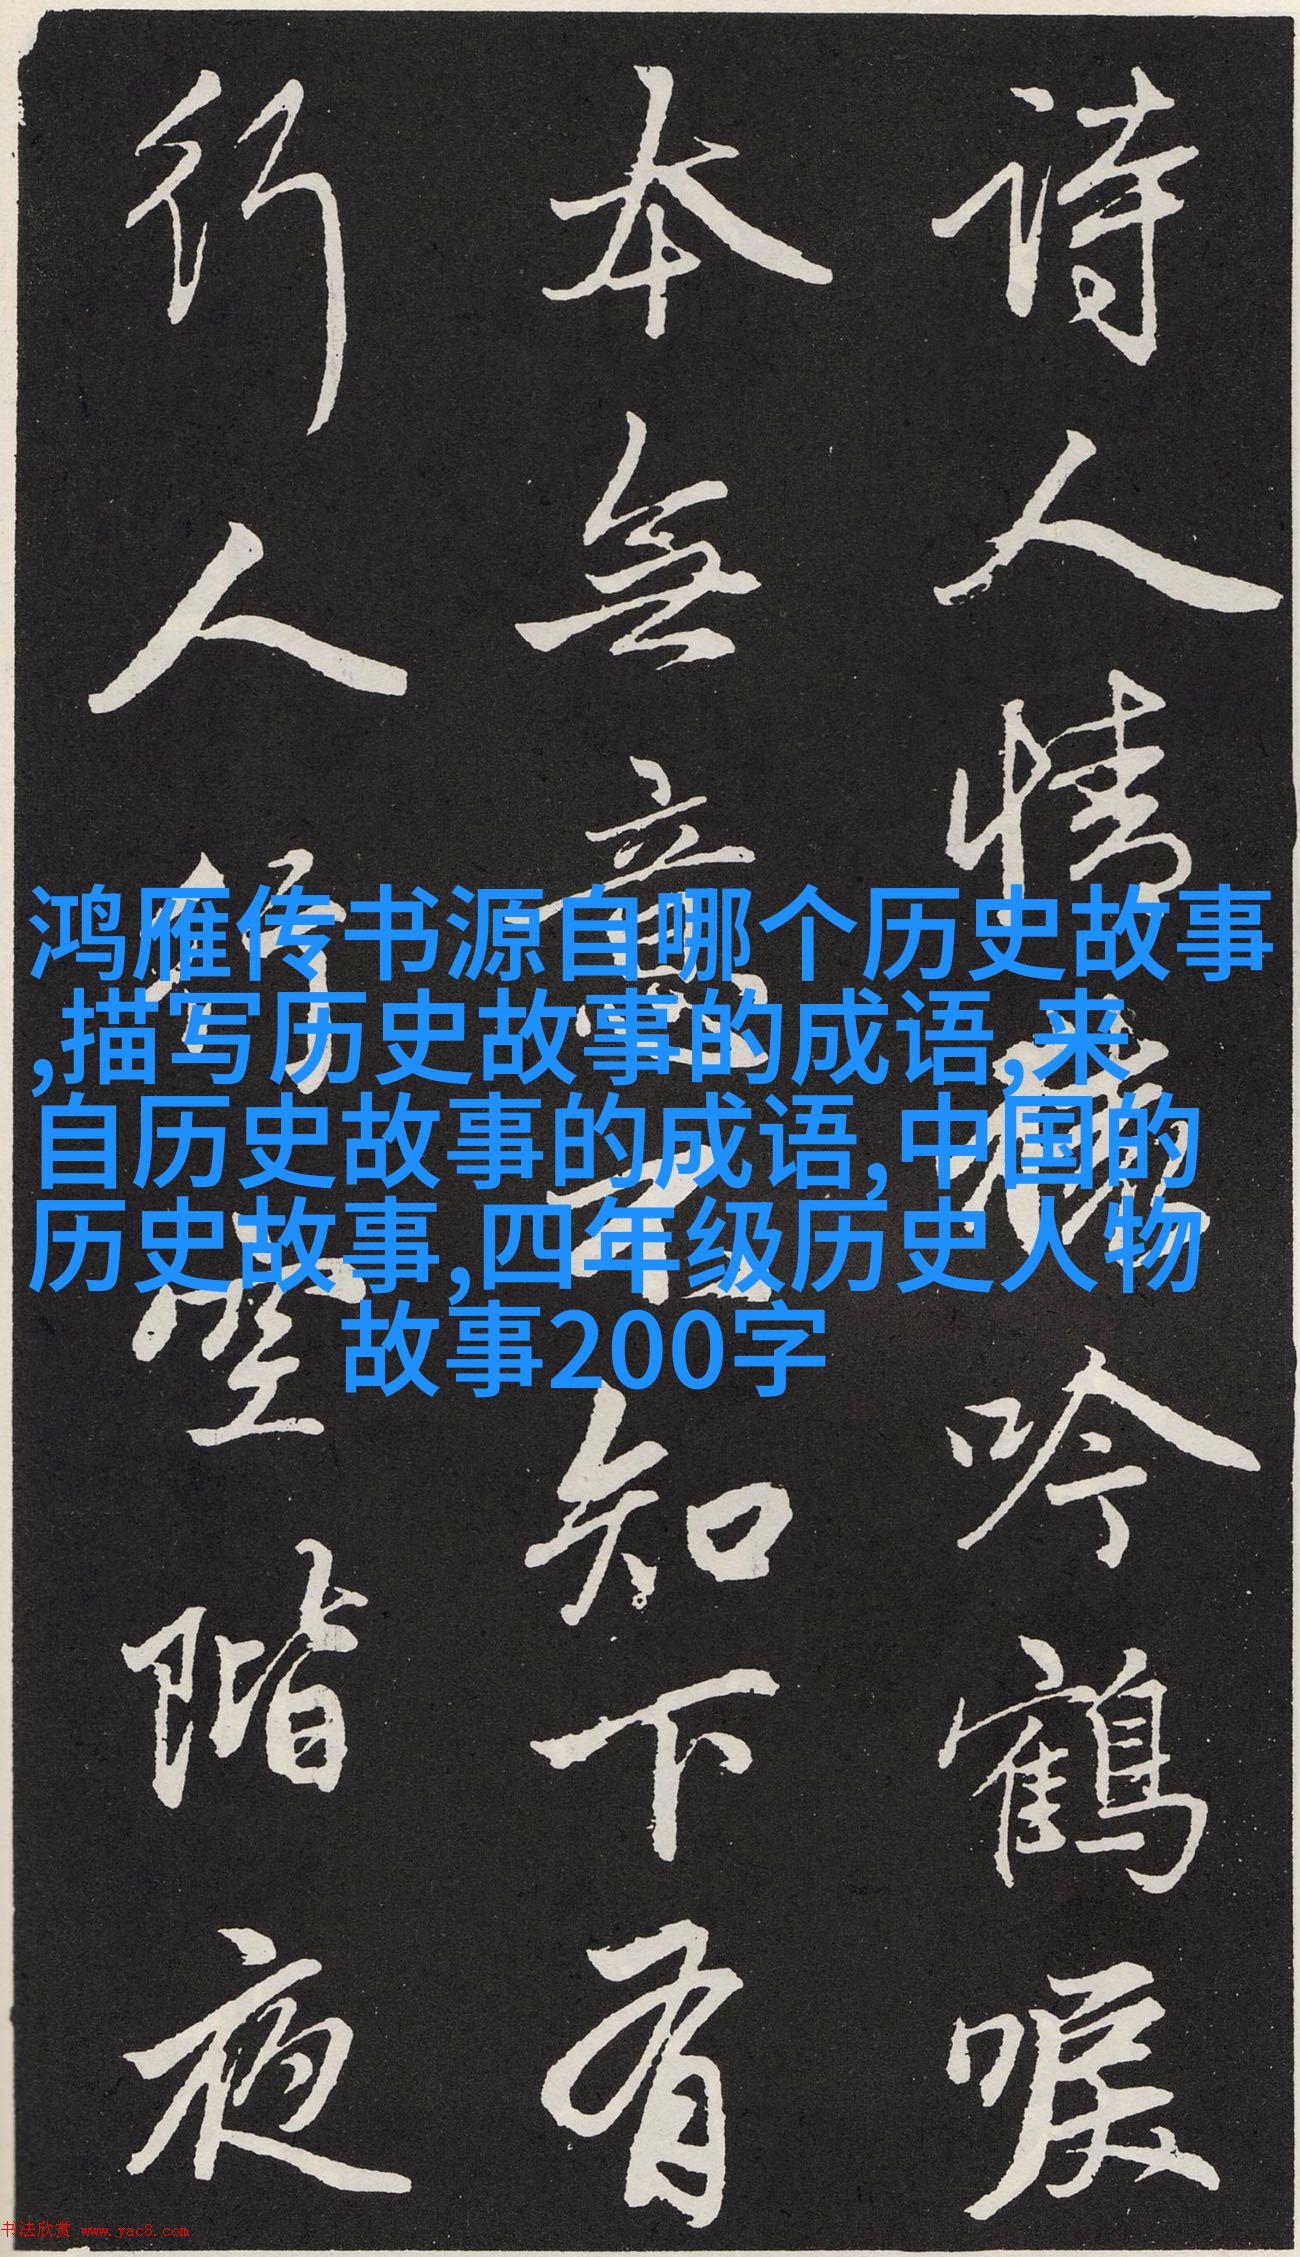 诗人情癖吟鹤唳
本无意不知下有
行人行空阶夜
鸿雁传书源自哪个历史故事
,描写历史故事的成语,来
自历史故事的成语,中国的
历史故事,四年级历史人物
故事200字
书法欣赏 www.yac8.com